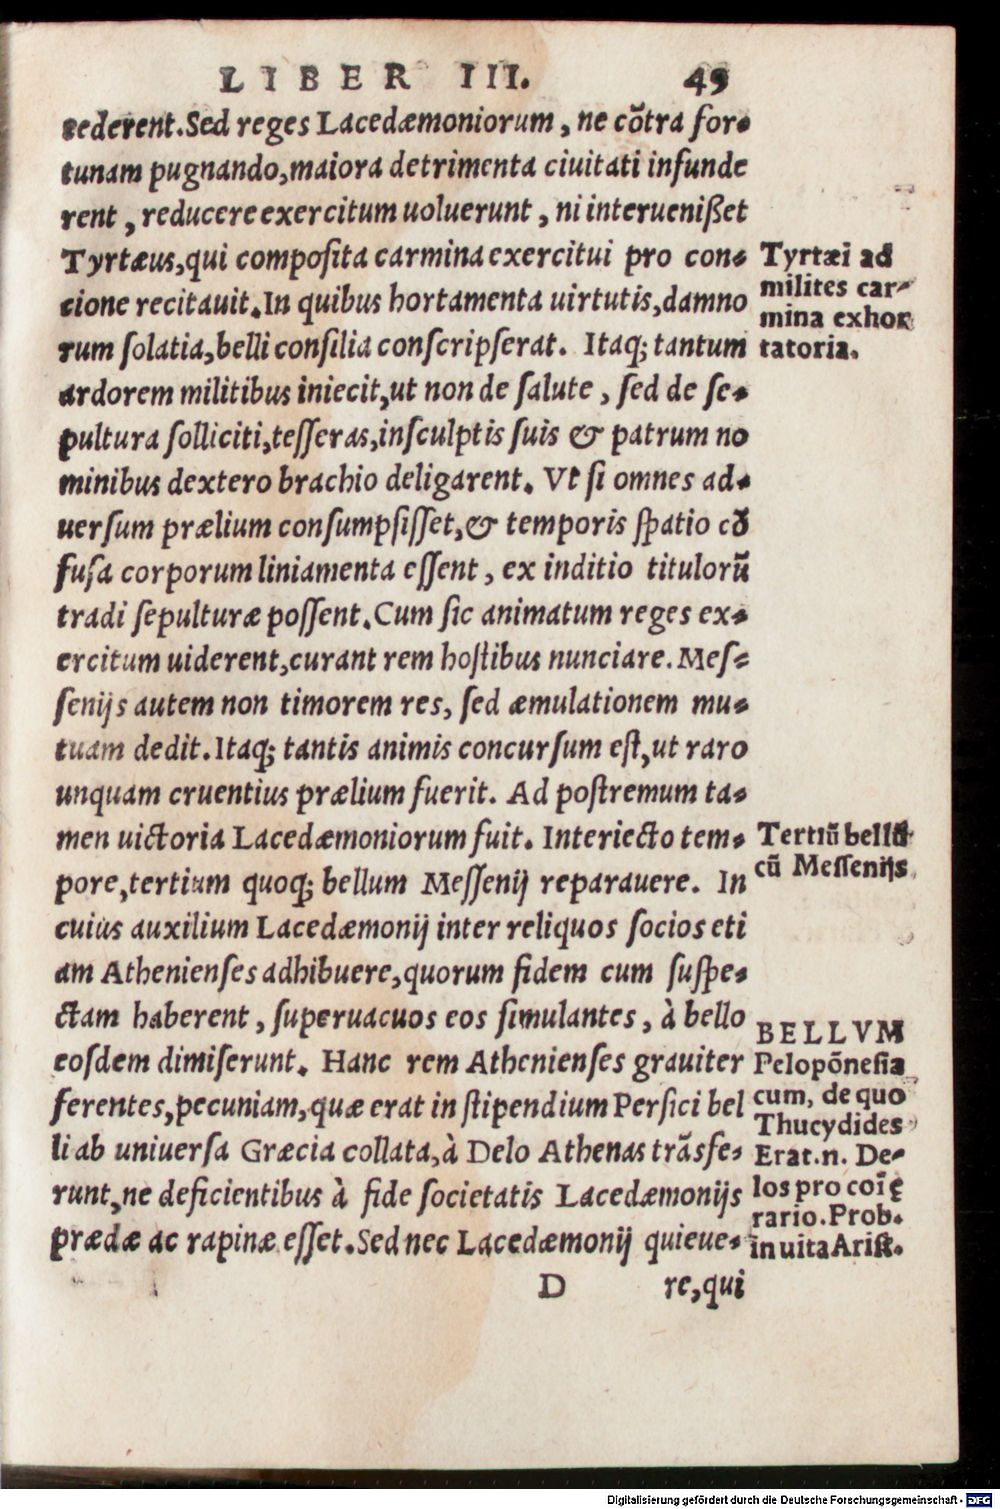 LIBER III. 49
rederent. Sed reges Lacedæmoniorum, ne cõtra for-
tunam pugnando, maiora detrimenta ciuitati infunde
rent, reducere exercitum uoluerunt, ni interuenißet
Tyrtæus, qui composita carmina exercitui pro con-
cione recitauit. In quibus hortamenta uirtutis, damno
rum solatia, belli consilia conscripserat. Itaq; tantum
ardorem militibus iniecit, ut non de salute, sed de se-
pultura solliciti, tesseras, insculptis suis & patrum no
minibus dextero brachio deligarent. Vt si omnes ad-
uersum prælium consumpsisset, & temporis spatio cõ
fusa corporum liniamenta essent, ex inditio titulorũ
tradi sepulturæ possent. Cum sic animatum reges ex-
ercitum uiderent, curant rem hostibus nunciare. Mes-
senijs autem non timorem res, sed æmulationem mu-
tuam dedit. Itaq; tantis animis concursum est, ut raro
unquam cruentius prælium fuerit. Ad postremum ta-
men uictoria Lacedæmoniorum fuit. Interiecto tem-
pore, tertium quoq; bellum Messenij reparauere. In
cuius auxilium Lacedæmonij inter reliquos socios eti
am Athenienses adhibuere, quorum fidem cum suspe-
ctam haberent, superuacuos eos simulantes, à bello
eosdem dimiserunt. Hanc rem Athenienses grauiter
ferentes, pecuniam, quæ erat in stipendium Persici bel
li ab uniuersa Græcia collata, à Delo Athenas trãsfe-
runt, ne deficientibus à fide societatis Lacedæmonijs
prædæ ac rapinæ esset. Sed nec Lacedæmonij quieue-
D re, qui
Tyrtæi ad
milites car-
mina exhor
tatoria.
Tertiũ bellũ
cũ Messenijs
BELLVM
Pelopõnesia
cum, de quo
Thucydides
Erat. n. De-
los pro coĩ ę
rario. Prob.
in uita Arist.
Digitalisierung gefördert durch die Deutsche Forschungsgemeinschaft - DFG